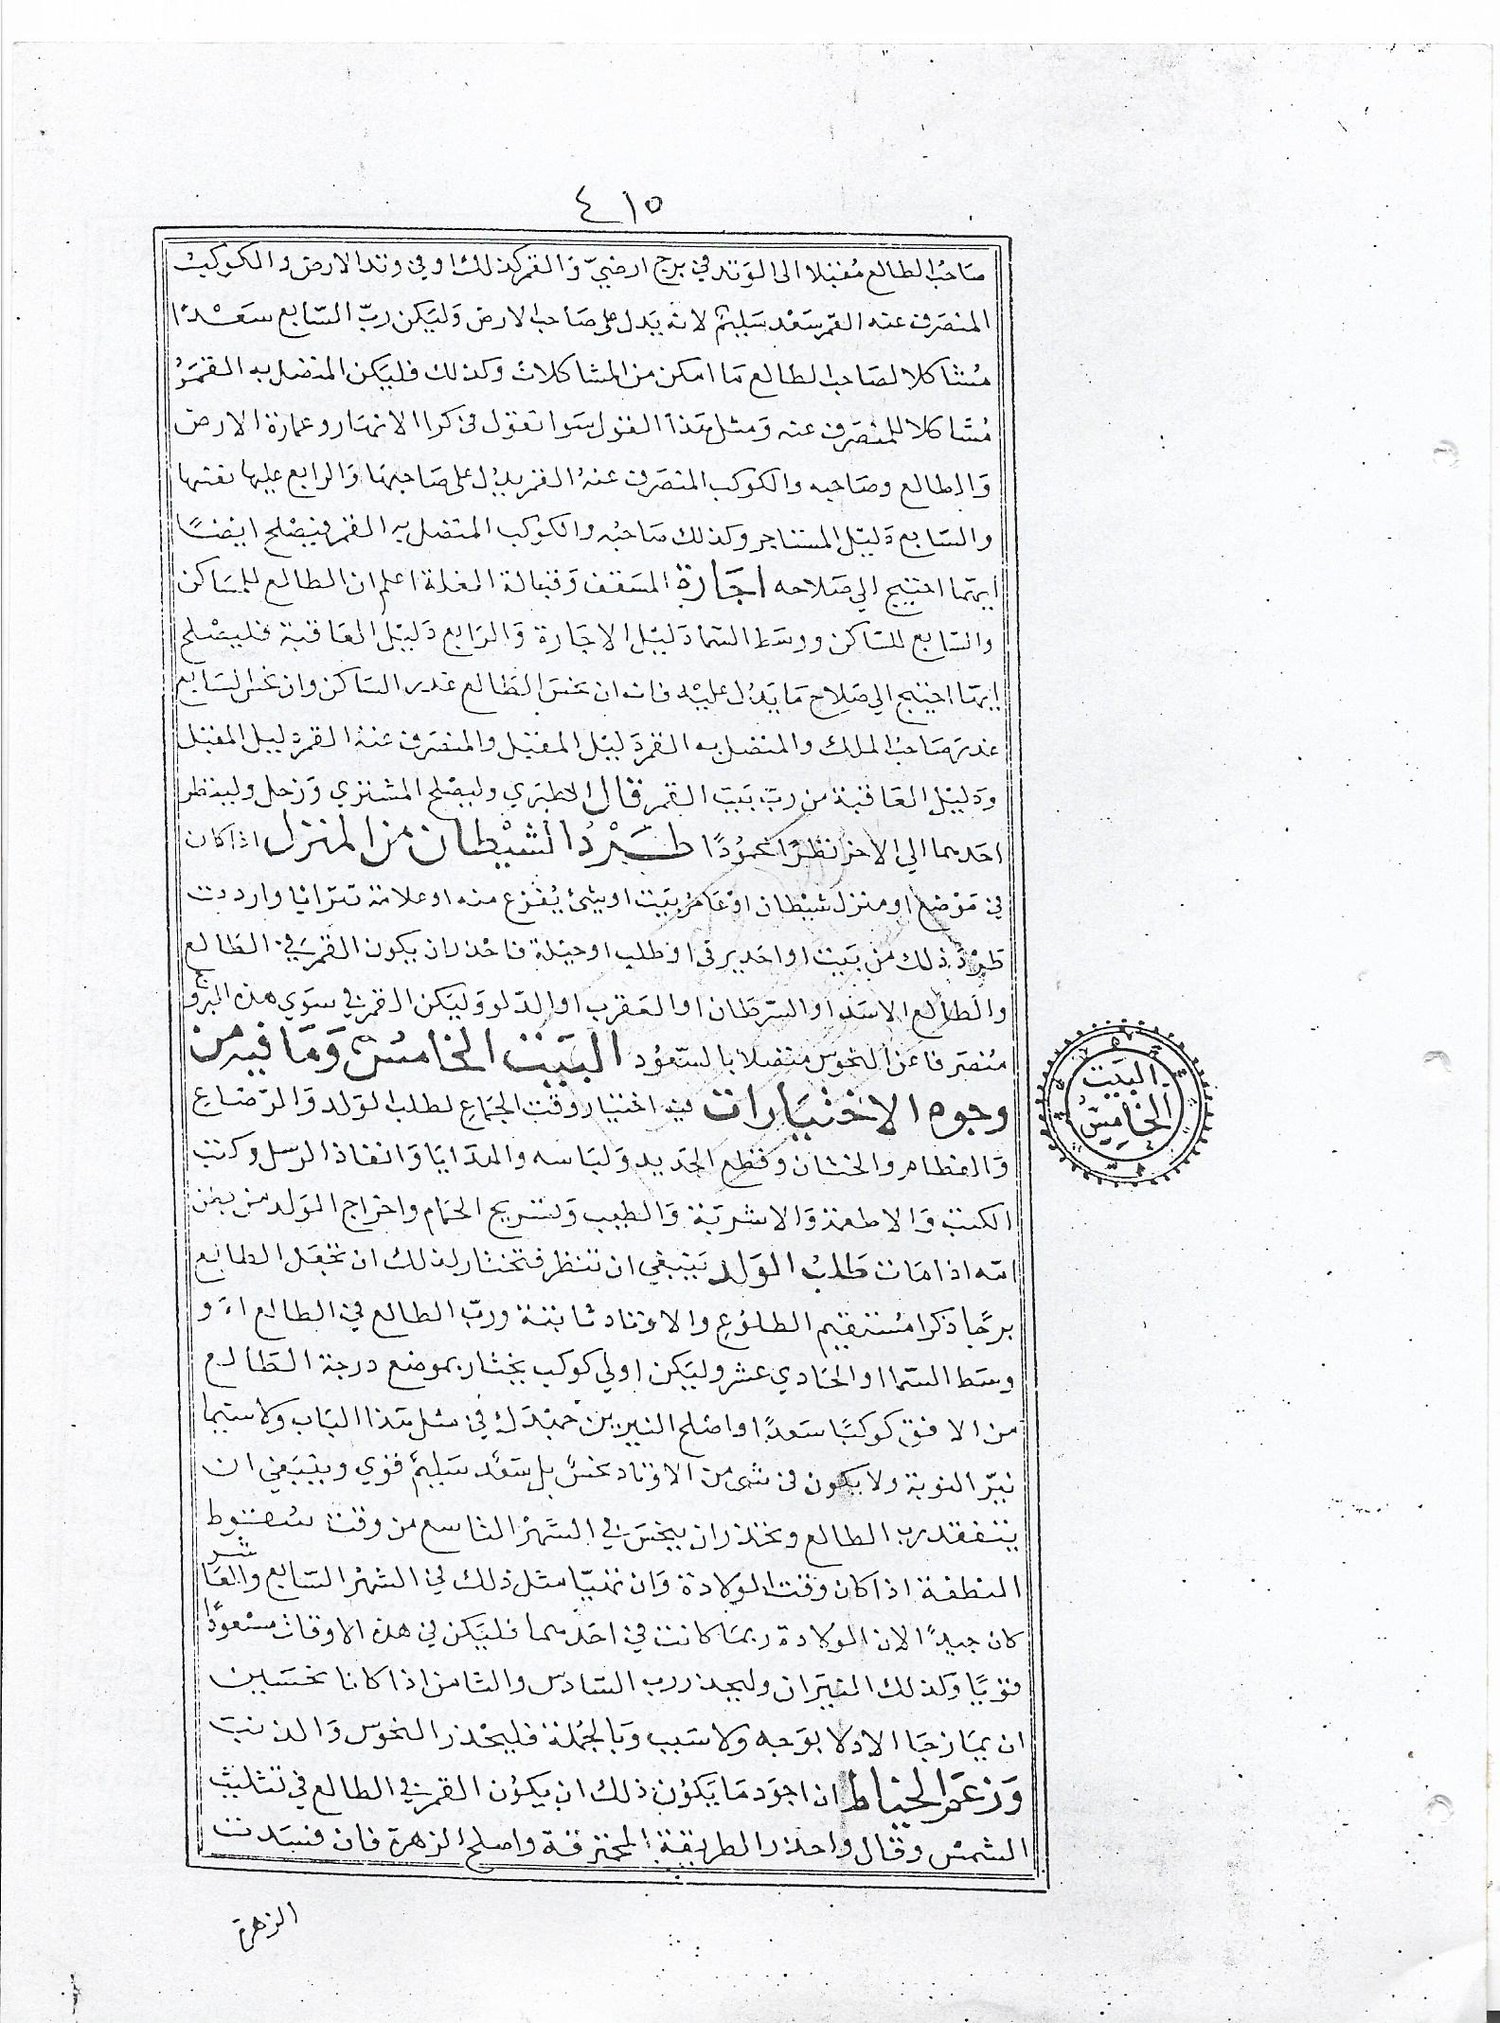 ٤١٥
صاحب الطالع مقبلا الى الوتد في برج ارضي والقمر كذلك او في وتد الارض والكوكب
المنصرف عنه القمر سعد سليم لانه يدل على صاحب الارض وليكن رب السابع سعدا
مشاكلا لصاحب الطالع ما امكن من المشاكلات وكذلك فليكن المتصل به القمر
مشاكلا للمنصرف عنه ومثل هذا القول سوا تقول في كرا الانهار وعمارة الارض
والطالع وصاحبه والكوكب المنصرف عنه القمر يدل على صاحبها والرابع عليها نفسها
والسابع دليل المستاجر وكذلك صاحبه والكوكب المتصل به القمر فيصلح ايضا
ايهما احتيج الي صلاحه اجارة المسقف وقبالة الغلة اعلم ان الطالع للساكن
والسابع للساكن ووسط السما دليل الاجارة والرابع دليل العاقبة فليصلح
ايهما احتيج الي صلاح ما يدل عليه فانه ان نحس الطالع غدر الساكن وان نحس السابع
غدر صاحب الملك والمتصل به القمر دليل المقبل والمنصرف عنه القمر دليل المقبل
ودليل العاقبة من رب بيت القمر قال الطبري وليصلح المشتري وزحل ولينظر
احدهما الي الاخر نظرا محمودا طرد الشيطان من المنزل اذا كان
في موضع او منزل شيطان او عامر بيت او شئ يفزع منه او علامة تترايا واردت
طرد ذلك من بيت او احد برقي او طلب او حيلة فاحذر ان يكون القمر في الطالع
والطالع الاسد او السرطان او العقرب او الدلو وليكن القمر في سوي هذه البروج
منصرفا عن النحوس متصلا بالسعود البيت الخامس وما فيه من
وجوه الاختيارات فيه اختيار وقت الجماع لطلب الولد والرضاع
والفطام والختان وقطع الجديد ولباسه والهدايا وانفاذ الرسل وكتب
الكتب والاطعمة والاشربة والطيب وتسريح الحمام واخراج الولد من بطن
امه اذا مات طلب الولد ينبغي ان تنظر فتختار لذلك ان تجعل الطالع
برجا ذكرا مستقيم الطلوع والاوتاد ثابتة ورب الطالع في الطالع او
وسط السما او الحادي عشر وليكن اولي كوكب يختار بموضع درجة الطالع
من الافق كوكبا سعدا واصلح النيرين جهدك في مثل هذا الباب ولاسيما
نير النوبة ولا يكون في شى من الاوتاد نحس بل سعد سليم قوي وينبغي ان
يتفقد رب الطالع ويحذر ان ينحس في الشهر التاسع من وقت سقوط
النطفة اذا كان وقت الولادة وان تهيا مثل ذلك في الشهر السابع والعاشر
كان جيدا لان الولادة ربما كانت في احدهما فليكن في هذه الاوقات مسعودا
قويا وكذلك النيران وليحذر رب السادس والثامن اذا كانا نحسين
ان يمازجا الادلا بوجه ولا سبب وبالجملة فليحذر النحوس والذنب
وزعم الخياط ان اجود ما يكون ذلك ان يكون القمر في الطالع في تثليث
الشمس وقال واحذر الطريقة المحترقة واصلح الزهرة فان فسدت
الزهرة
البيت
الخامس